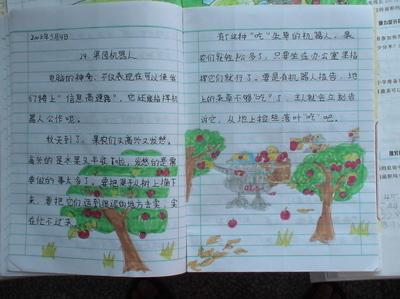 2012年5月4日
19 果园机器人
电脑的神奇，不仅表现在可以使我
们骑上“信息高速路”，它还能指挥机
器人工作呢。
秋天到了，果农们又高兴又发愁。
高兴的是水果又丰收了啦，发愁的是需
要做的事太多了，要把果子从树上摘下
来，要把它们运到很远的地方去卖，实
在忙不过来。
有了这种“吃”杂草的机器人，果
农们就轻松多了，只要坐在办公室里指
挥它们就行了。要是有机器人报告，地
上的杂草不够“吃”了，主人就会立刻告
诉它，从地上捡些落叶“吃”吧。